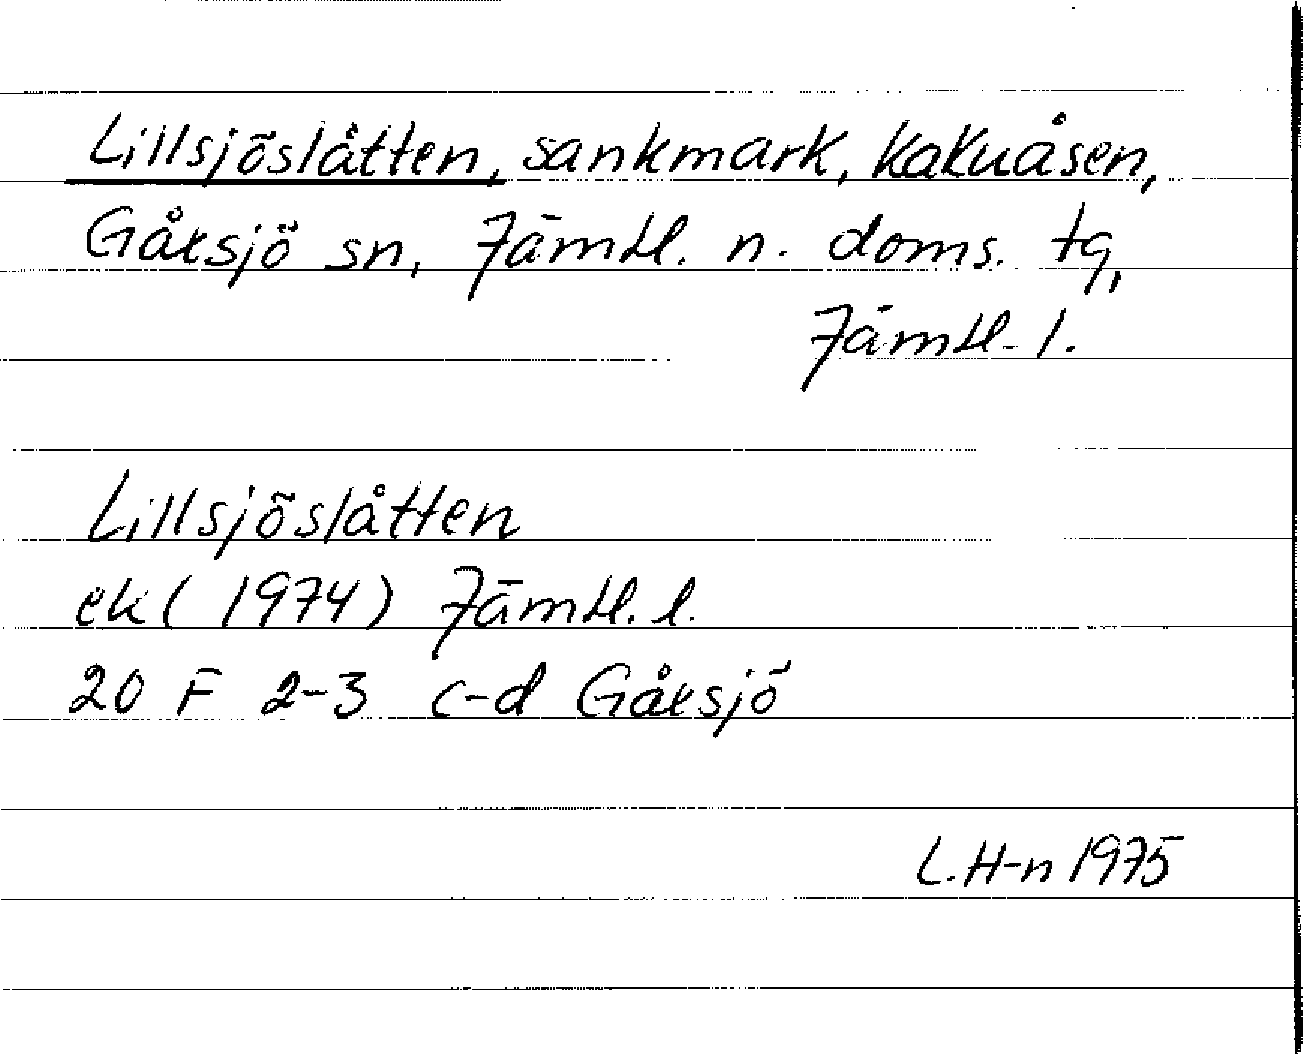 Lillsjöslåtten, sankmark, Kakuåsen,
Gåxsjö sn, Jämtl. n. doms. tg,
Jämtl. l.
Lillsjöslåtten
ek (1974) Jämtl. l.
20 F 2-3 c-d Gåxsjö
L. H-n 1975